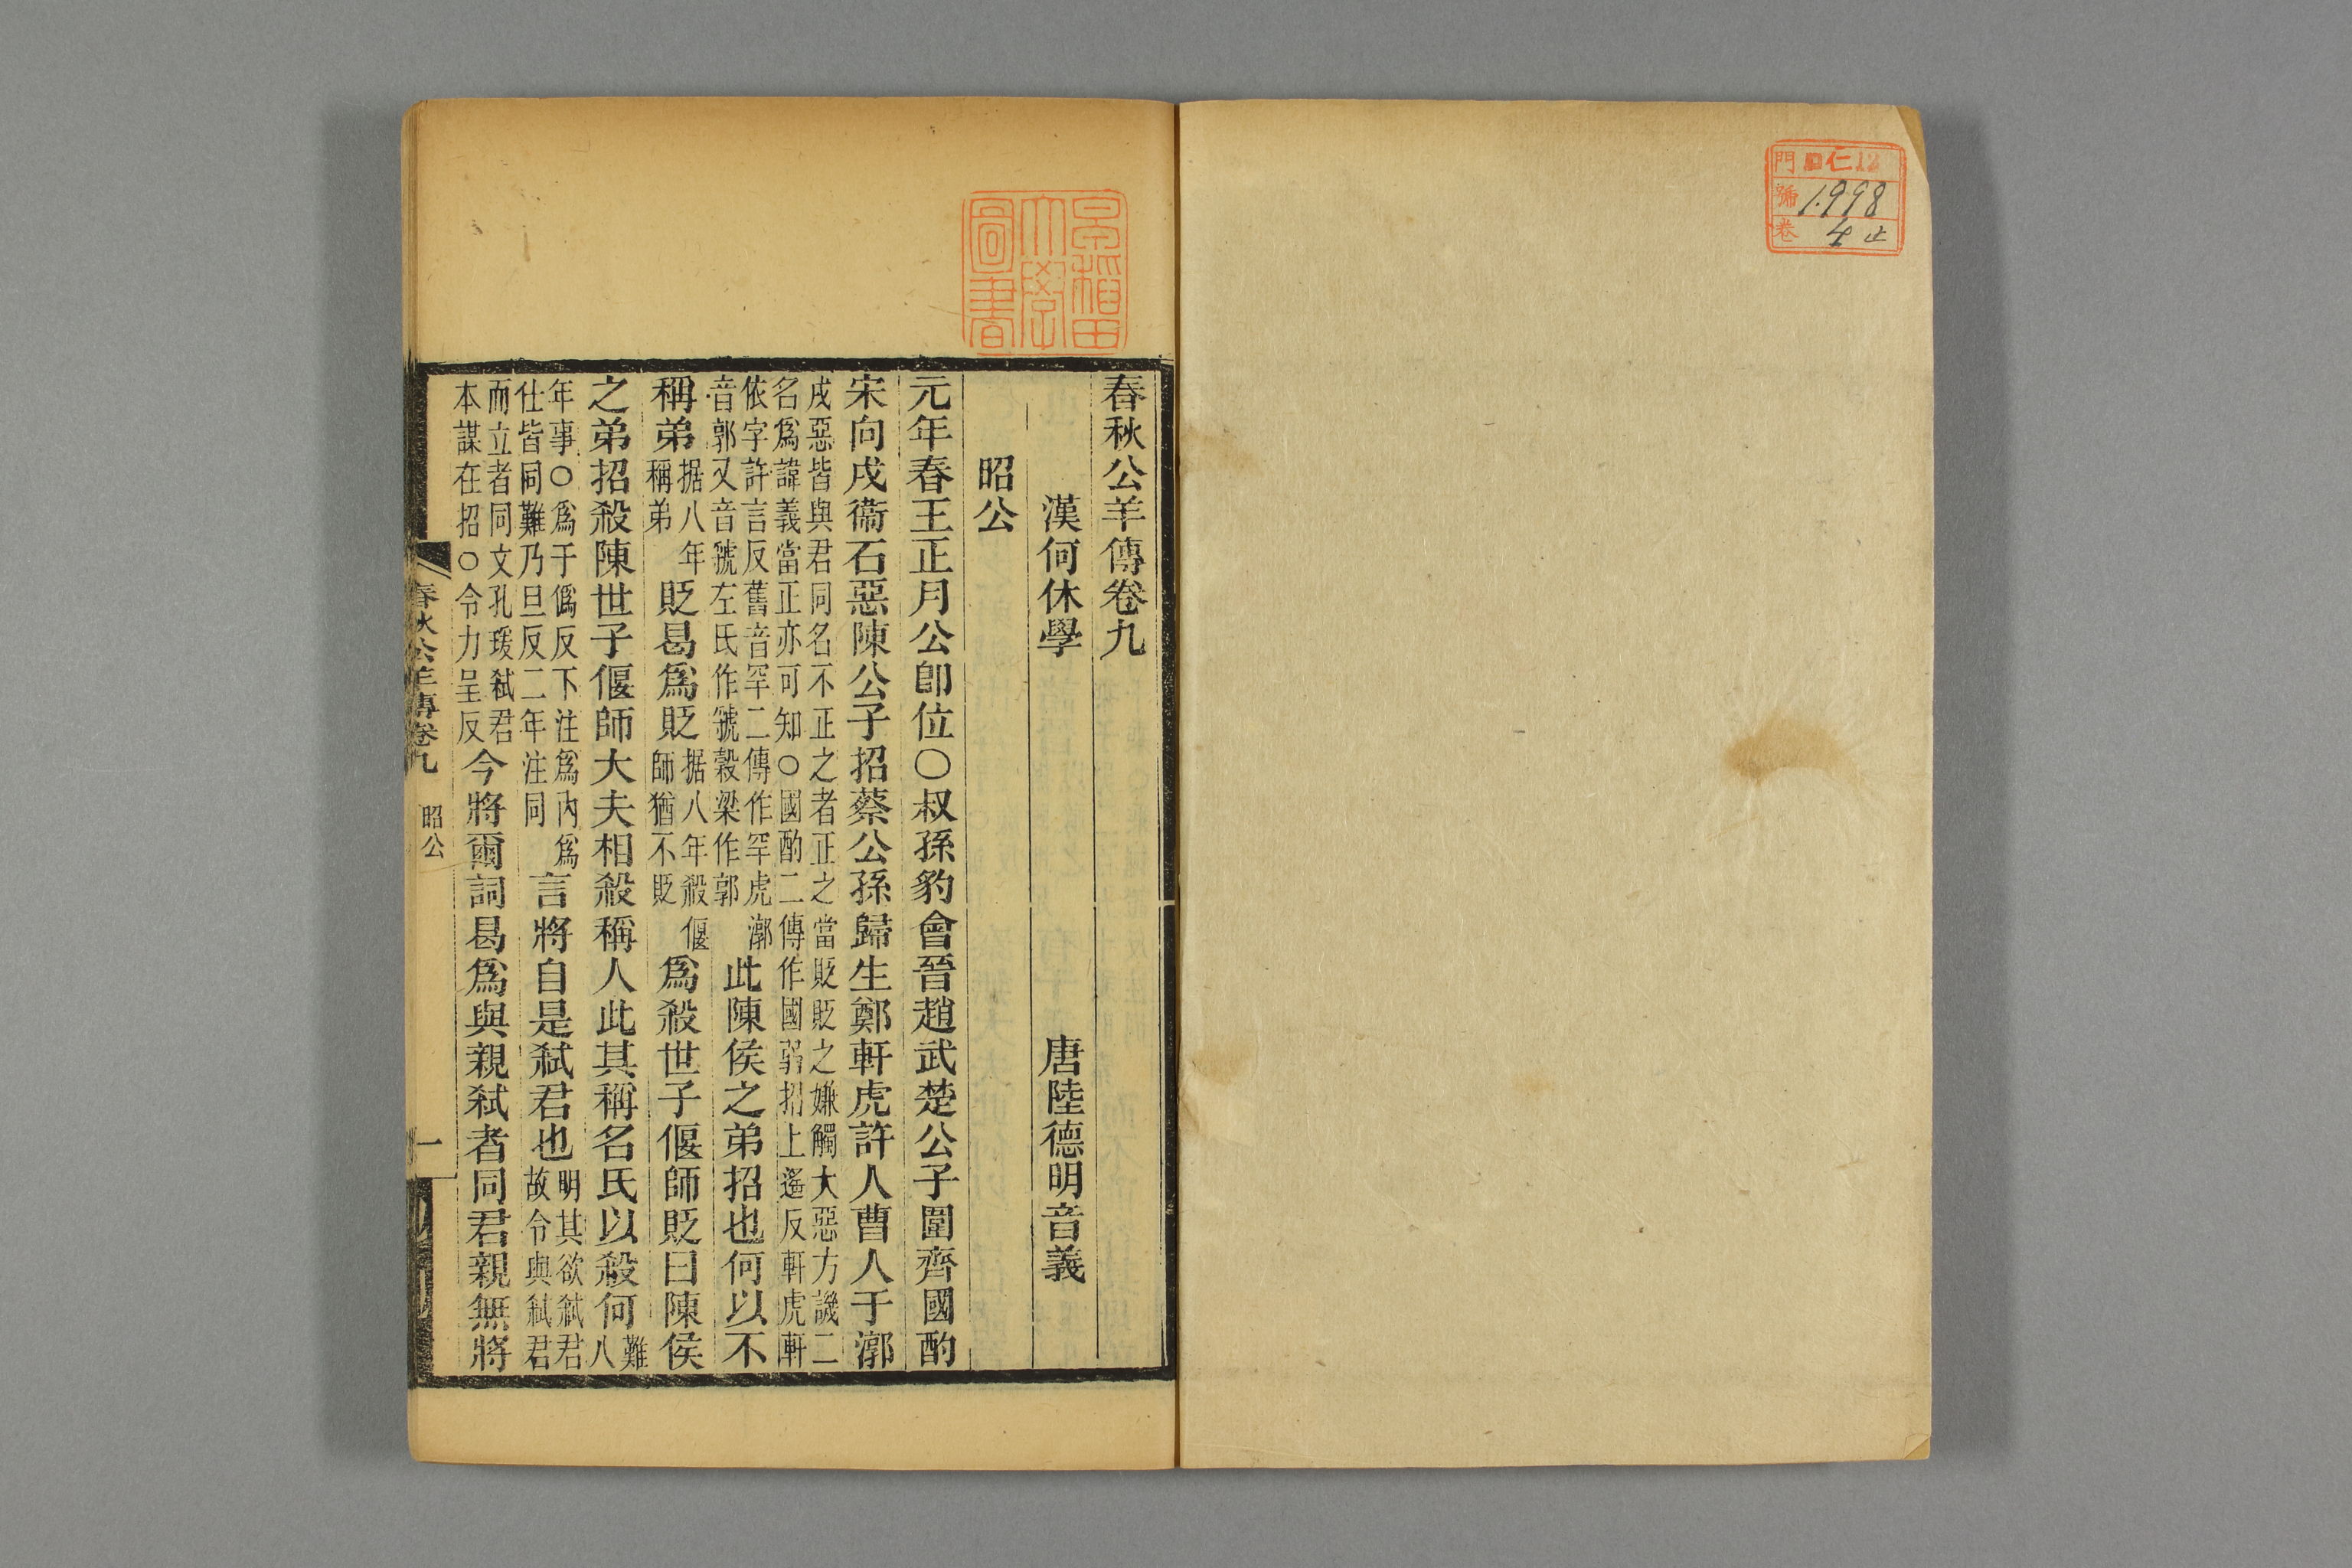 門 仁12
號 1998
卷
早稲田
大學
圖書
春秋公羊傳卷九
漢何休學 唐陸德明音義
昭公
元年春王正月公卽位○叔孫豹會晉趙武楚公子圍齊國酌
宋向戌衞石惡陳公子招蔡公孫歸生鄭軒虎許人曹人于漷
戌惡皆與君同名不正之者正之當貶貶之嫌觸大惡方譏二
名爲諱義當正亦可知○國酌二傳作國弱招上遙反軒虎軒
依字許言反舊音罕二傳作罕虎漷
音郭又音虢左氏作虢穀梁作郭
此陳侯之弟招也何以不
稱弟
据八年
稱弟
貶曷爲貶
据八年殺偃
師猶不貶
爲殺世子偃師貶曰陳侯
之弟招殺陳世子偃師大夫相殺稱人此其稱名氏以殺何
難
八
年事○爲于僞反下注爲内爲
仕皆同難乃旦反二年注同
言將自是弑君也
明其欲弑君
故令與弑君
而立者同文孔瑗弑君
本謀在招○令力呈反
今將爾詞曷爲與親弑者同君親無將
春秋公羊傳卷九 昭公 一